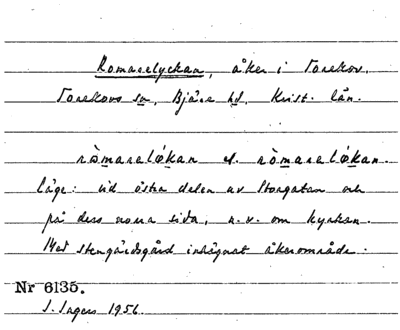 Romarelyckan, åker i Torekov.
Torekovs sn, Bjäre hd, Krist. län.
ròmarelớkan el. ròmarelớkan.
Läge: vid östra delen av Storgatan och
på dess norra sida, n.v. om kyrkan.
Med stengärdsgård inhägnat åkerområde.
Nr 6135.
S. Ingers 1956.